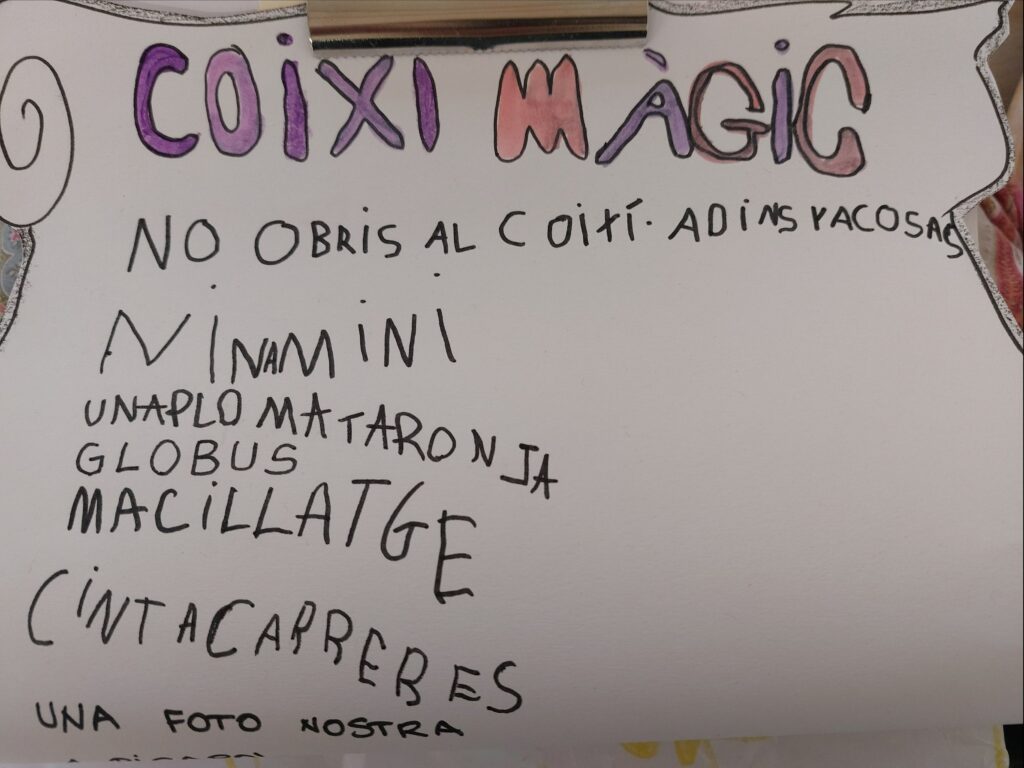 COIXI MÀGIC
NO OBRIS AL COIXÍ. ADINS YACOSAS
NINAMINI
UNAPLOMATARONJA
GLOBUS
MACILLATGE
CINTACARRERES
UNA FOTO NOSTRA